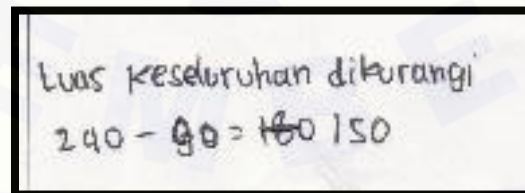 Luas keseluruhan dikurangi
240 - 90 = 150